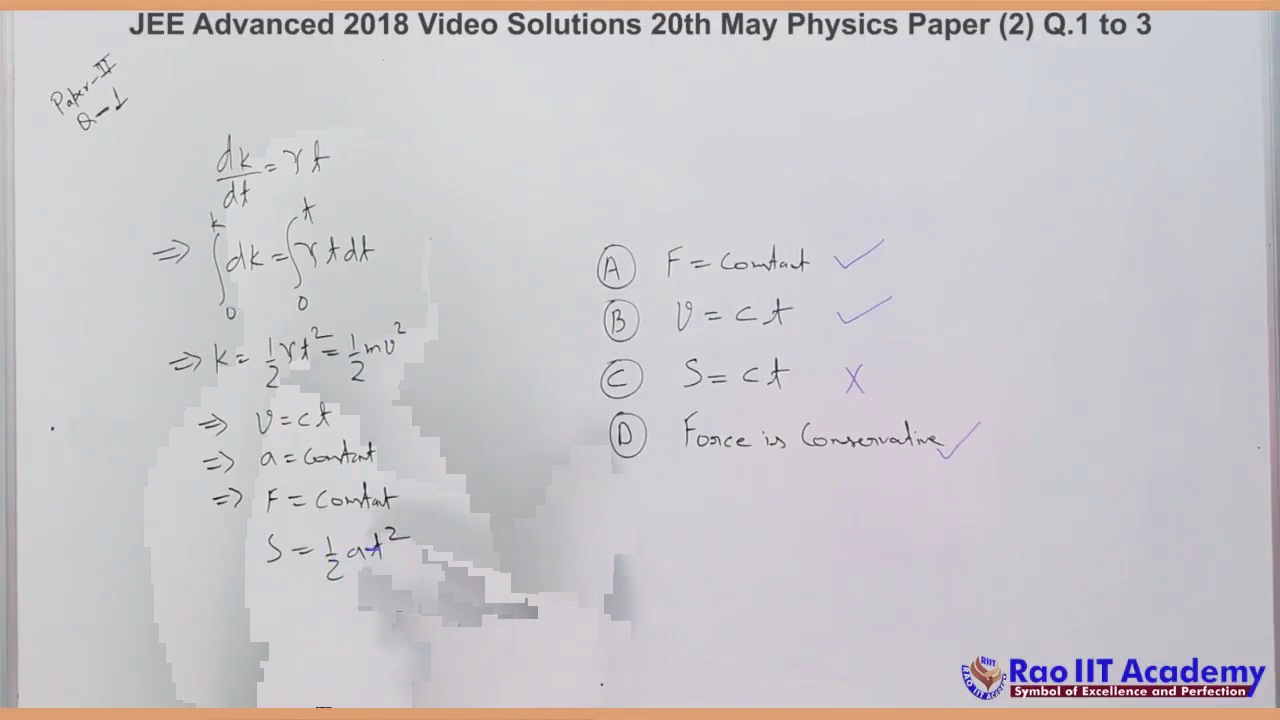 JEE Advanced 2018 Video Solutions 20th May Physics Paper (2) Q.1 to 3
Paper-II
Q-1
dk/dt = γt
⇒ ∫₀ᵏ dk = ∫₀ᵗ γt dt
⇒ k = 1/2 γt² = 1/2 mv²
⇒ v = ct
⇒ a = constant
⇒ F = constant
S = 1/2 at²
(A) F = constant ✓
(B) v = ct ✓
(C) S = ct X
(D) Force is Conservative ✓
RIIT
RAO IIT ACADEMY
Rao IIT Academy
Symbol of Excellence and Perfection